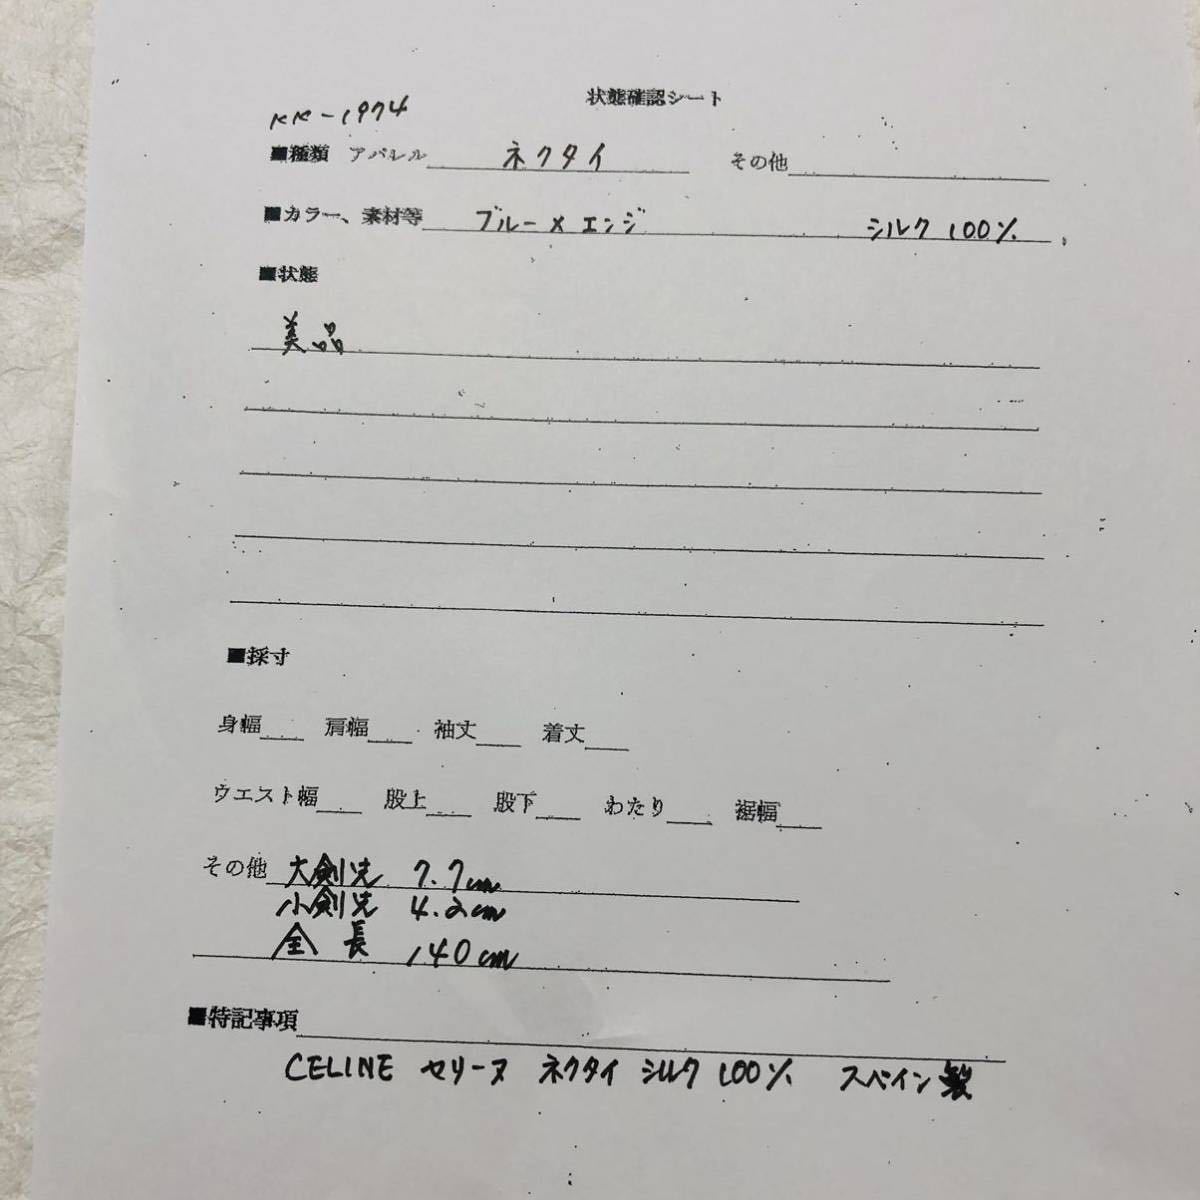 状態確認シート
KK-1974
■種類 アパレル ネクタイ その他
■カラー、素材等 ブルー×エンジ シルク 100%
■状態
美品
■採寸
身幅 肩幅 袖丈 着丈
ウエスト幅 股上 股下 わたり 裾幅
その他 大剣先 7.7cm
小剣先 4.2cm
全長 140cm
■特記事項
CELINE セリーヌ ネクタイ シルク 100% スペイン製